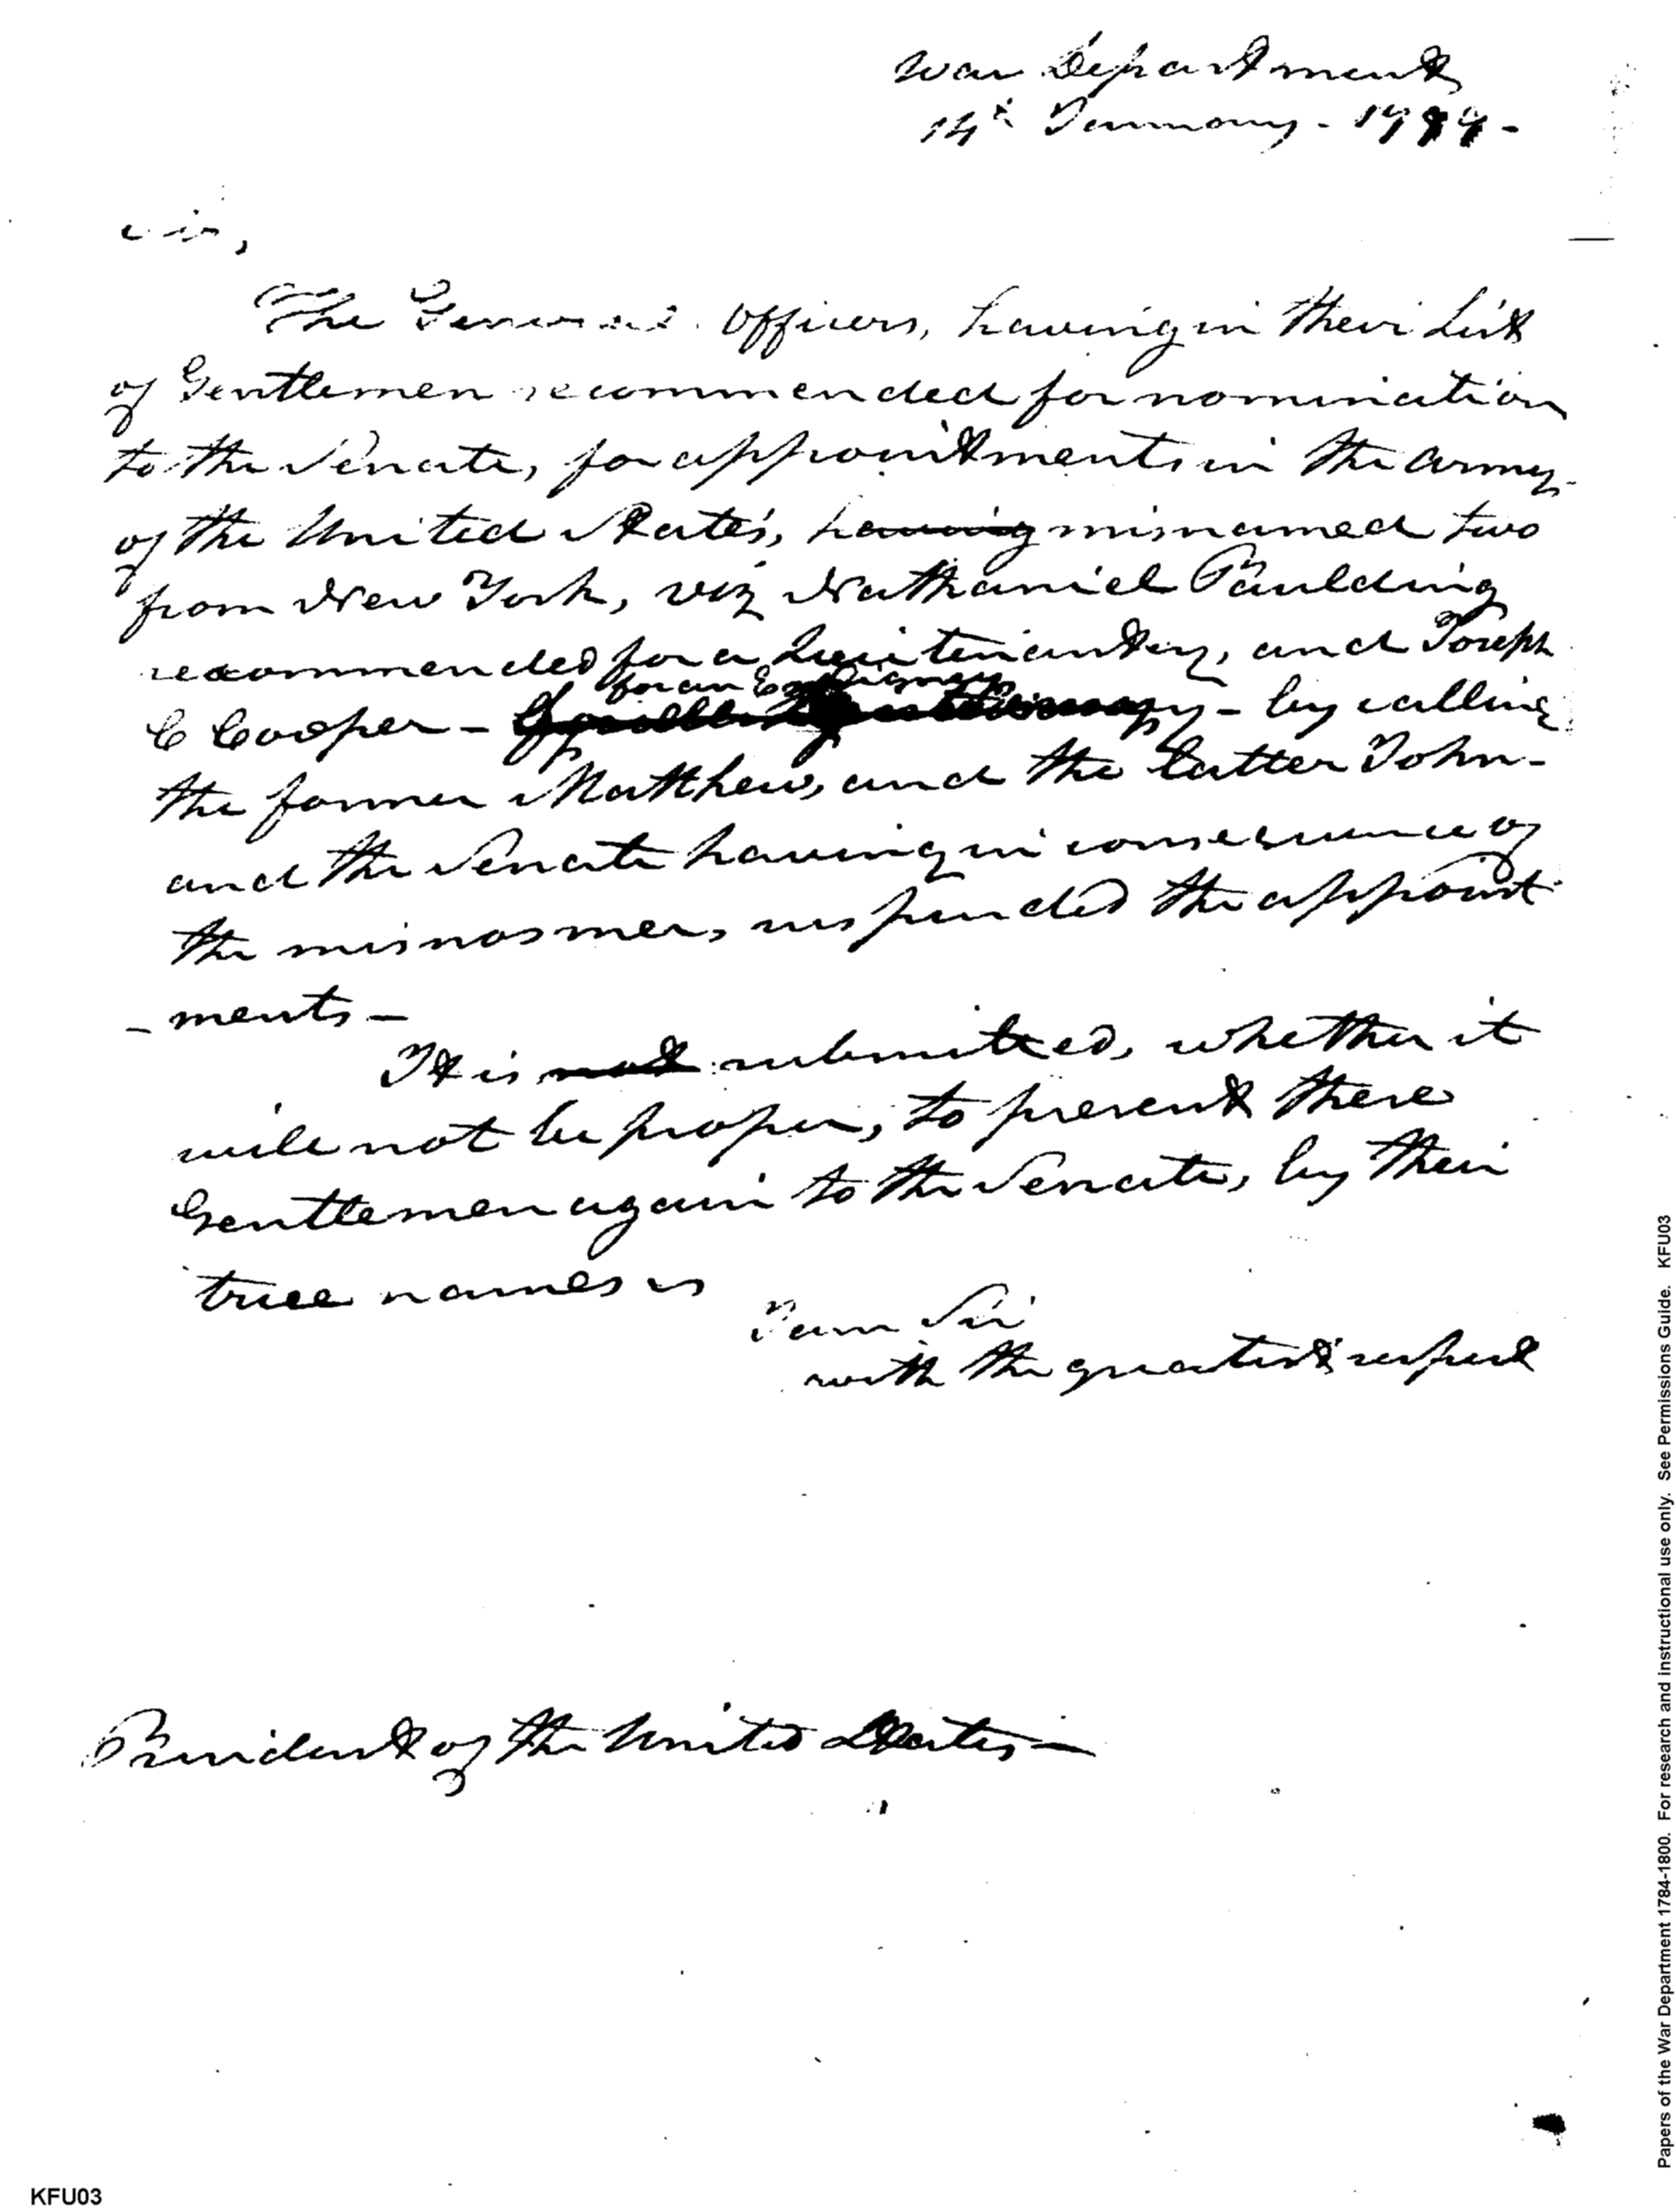 War Department
14th January - 1799 -
Sir,
The General Officers, having in their List
of Gentlemen recommended for nomination
to the Senate, for appointments in the army
of the United States, having misnamed two
from New York, viz Nathaniel Paulding
recommended for a Lieutenantcy, and Joseph
for an Ensigncy
C Cooper - by calling
the former Matthew, and the latter John -
and the Senate having in consequence of
the misnosmer, suspended the appoint
- ments -
It is not submitted, whether it
will not be proper, to present these
Gentlemen again to the Senate, by their
true names
I am Sir
with the greatest respect
President of the United States -
Papers of the War Department 1784-1800. For research and instructional use only. See Permissions Guide. KFU03
KFU03